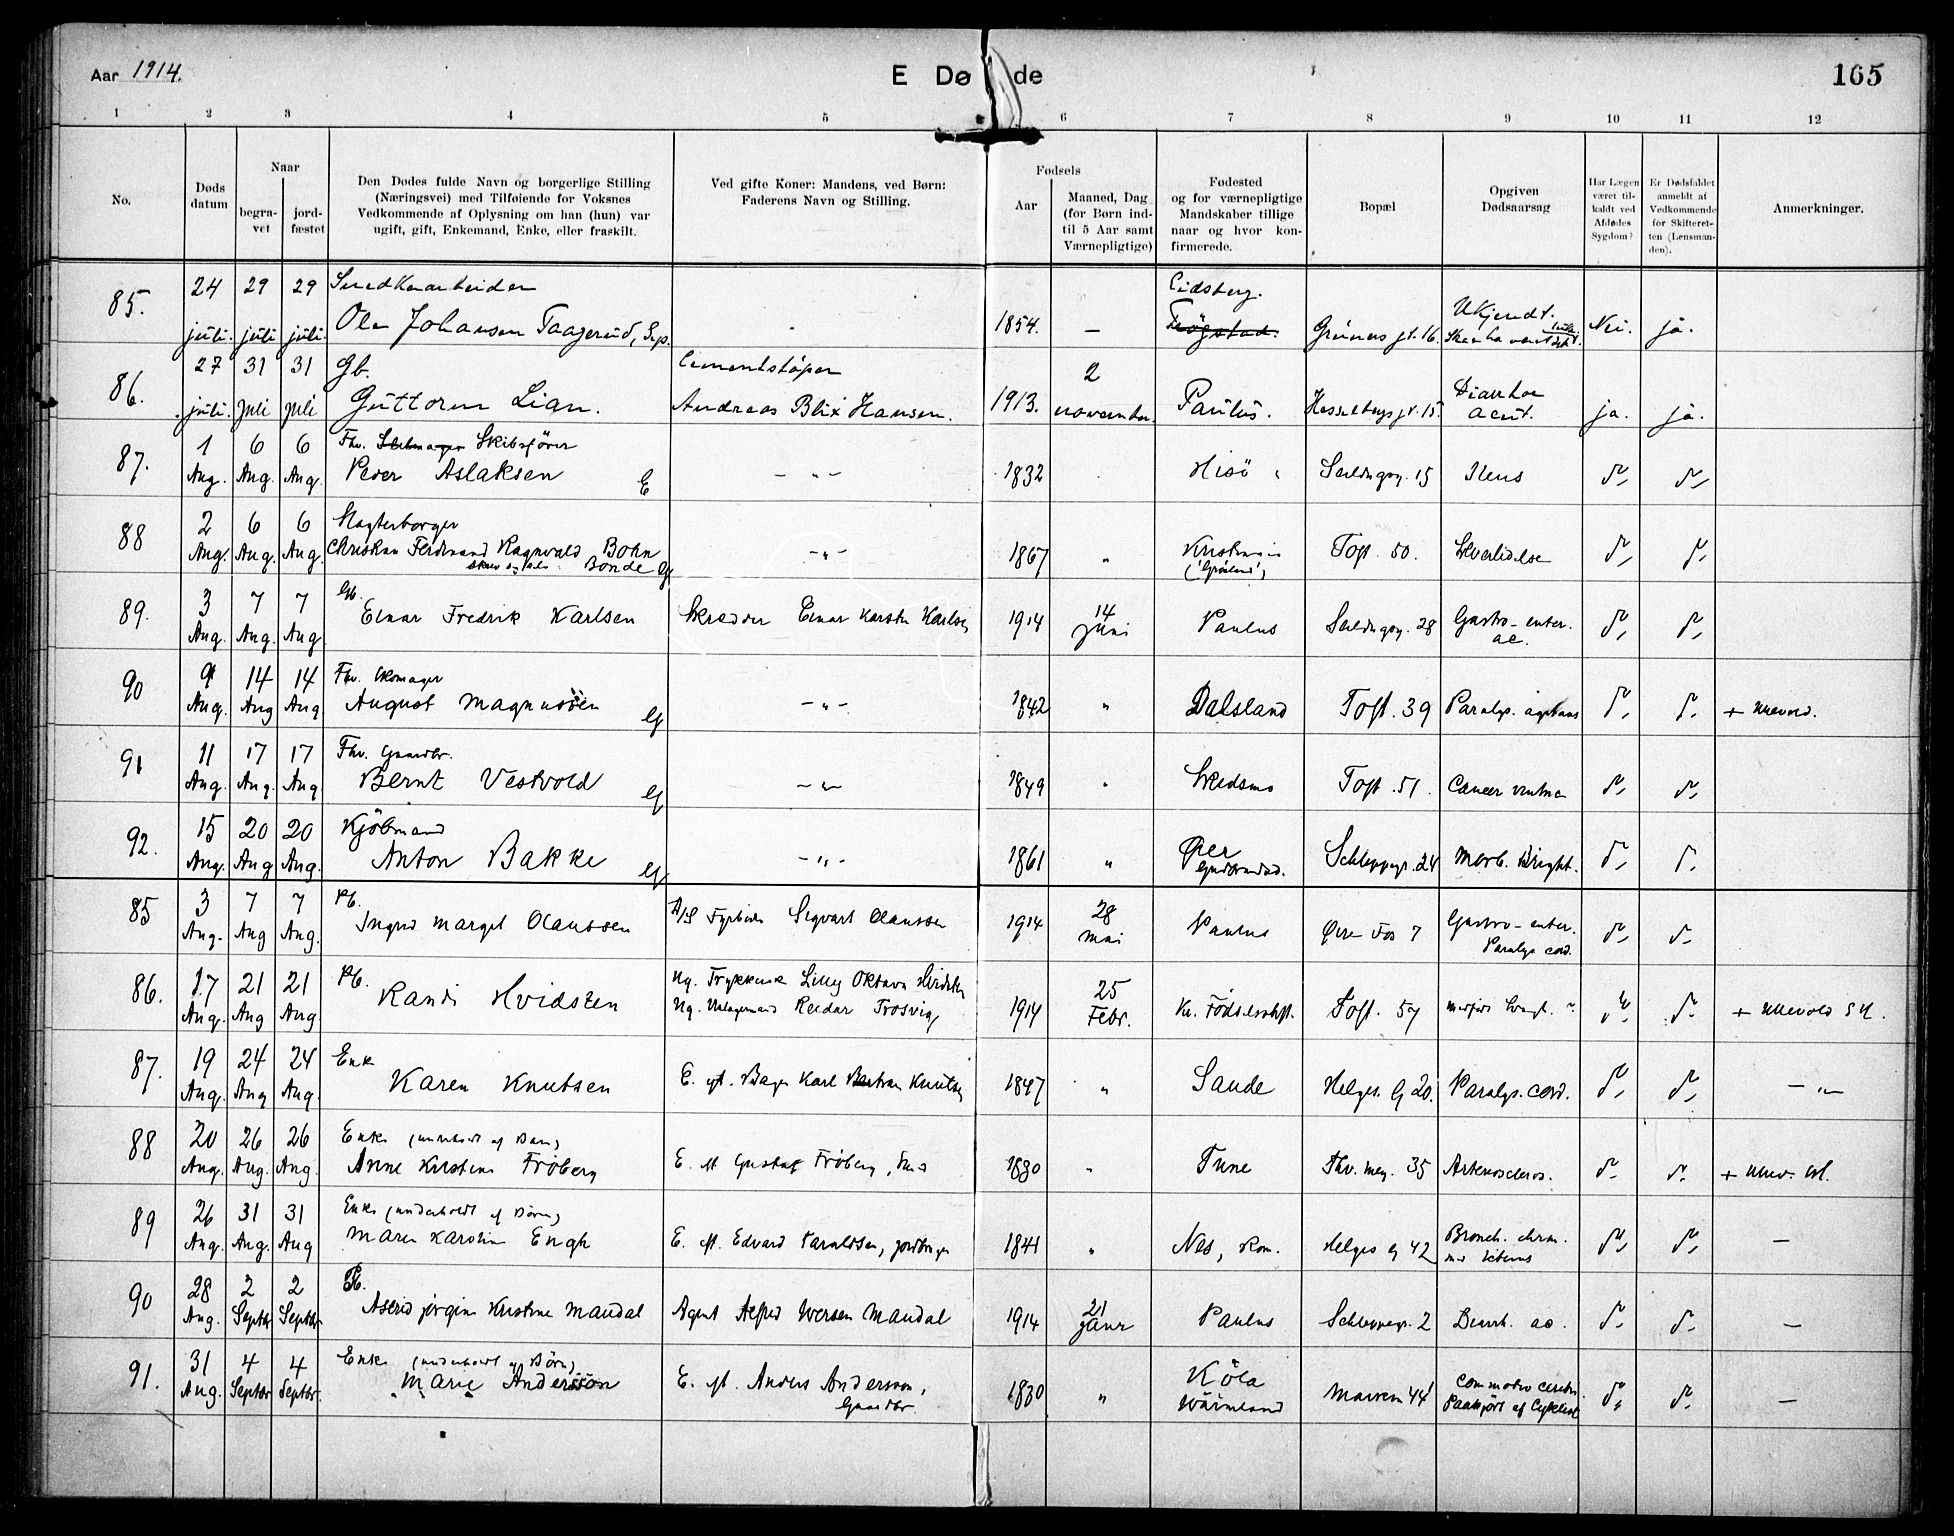 Aar 1914.
E Dø de
165
1 2 3 4 5 6 7 8 9 10 11 12
No.
Døds datum
Naar
begra-vet
jord-fæstet
Den Dødes fulde Navn og borgerlige Stilling
(Næringsvei) med Tilføiende for Voksnes
Vedkommende af Oplysning om han (hun) var
ugift, gift, Enkemand, Enke, eller fraskilt.
Ved gifte Koner: Mandens, ved Børn:
Faderens Navn og Stilling.
Fødsels
Aar
Maaned, Dag
(for Børn ind-
til 5 Aar samt
Værnepligtige)
Fødested
og for værnepligtige
Mandskaber tillige
naar og hvor kon-
firmerede.
Bopæl
Opgiven
Dødsaarsag
Har Lægen
været til-
kaldt ved
Afdødes
Sygdom?
Er Dødsfaldet
anmeldt af
Vedkommende
for Skifteret-
ten (Lensman-
den).
Anmerkninger.
85. 24 juli. 29 juli 29 juli. Snedkerarbeider
Ole Johansen Taagerud, 1854. — Eidsberg. Trögstad. Grüners gt. 16. Ukjendt. Nei. ja.
86. 27 juli. 31 juli 31 juli Gb.
Guttorm Lian. Cimentstøper
Andreas Blix Hansen. 1913. 2 november. Paulus. Hesselbergs gt. 15 Diarrhoe acut. ja. ja.
87. 1 Aug. 6 Aug. 6 Aug. Fhv. Skibsfører
Peder Aslaksen E — " — 1832 Hisö 15 Ileus
88 2 Aug. 6 Aug. 6 Aug. Magterborger
Christian Ferdinand Ragnvald Bohn
Bonde — " — 1867 " Kristiania
(Grønland) Toft. 50. Leverlidelse
89. 3 Aug. 7 Aug. 7 Aug Gb.
Einar Fredrik Karlsen Skredder Einar Karsten Karlsen 1914 14 Juni Paulus 28 Gastro-enter.
ac.
90 9 Aug. 14 Aug 14 Aug Fhv. Skomager
August Magnussen — " — 1842 " Dalsland Toft. 39 Paralys. agitans + Ullevold.
91 11 Aug. 17 Aug. 17 Aug Fhv. Gaardbr.
Bernt Vestvold — " — 1849 Skedsmo Toft. 51. Cancer
92. 15 Aug. 20 Aug 20 Aug. Kjöbmand
Anton Bakke — " — 1861 " Öier
Gudbrandsd. Schleppegr. 24 Morb. Bright.
85 3 Aug. 7 Aug 7 Aug. Pb.
Ingrid Margit Olaussen Fyrböder Sigvart Olaussen 1914 28 Mai Paulus Övre Fos 7 Gastro-enter.
Paralys cord.
86. 17 Aug. 21 Aug 21 Aug Pb.
Randi Hvidsten Ug. Trykkersk Lilly Oktava Hvidsten
Ug. Reidar Trosvig 1914 25 Febr. Kr. Fødselsstift. Toft. 57 + Ullevold
87. 19 Aug. 24 Aug 24 Aug. Enke
Karen Knutsen E. eft. Bager Karl Knutsen 1847 " Sande Helges. g 20. Paralys. cord. — " —
88 20 Aug. 26 Aug. 26 Aug. Enke (underholdt af Barn)
Anne Kirstine Fröberg E. eft Gustaf Fröberg, 1830 " Tune Thv. mey. 35 Arterioscleros.
89 26 Aug. 31 Aug. 31 Aug Enke (underholdt af Børn)
Maren Karoline Engh E. eft. Edvard Haraldsen, Jordbruger 1841 " Nes, Rom. Helges g 42 Bronch. chron. —
90 28 Aug. 2 Septbr 2 Septbr Pb.
Astrid Jörgine Kristine Mandal Agent Alfred Iversen Mandal 1914 21 Janr Paulus Schleppegr. 2 ac. —
91. 31 Aug. 4 Septbr 4 Septbr. Enke (underholdt af Børn)
Marie Andersson E. eft. Anders Andersson,
Gaardbr. 1830 " Köla
Wärmland 44 Commotio cerebri.
Paakjört af Cyklist —